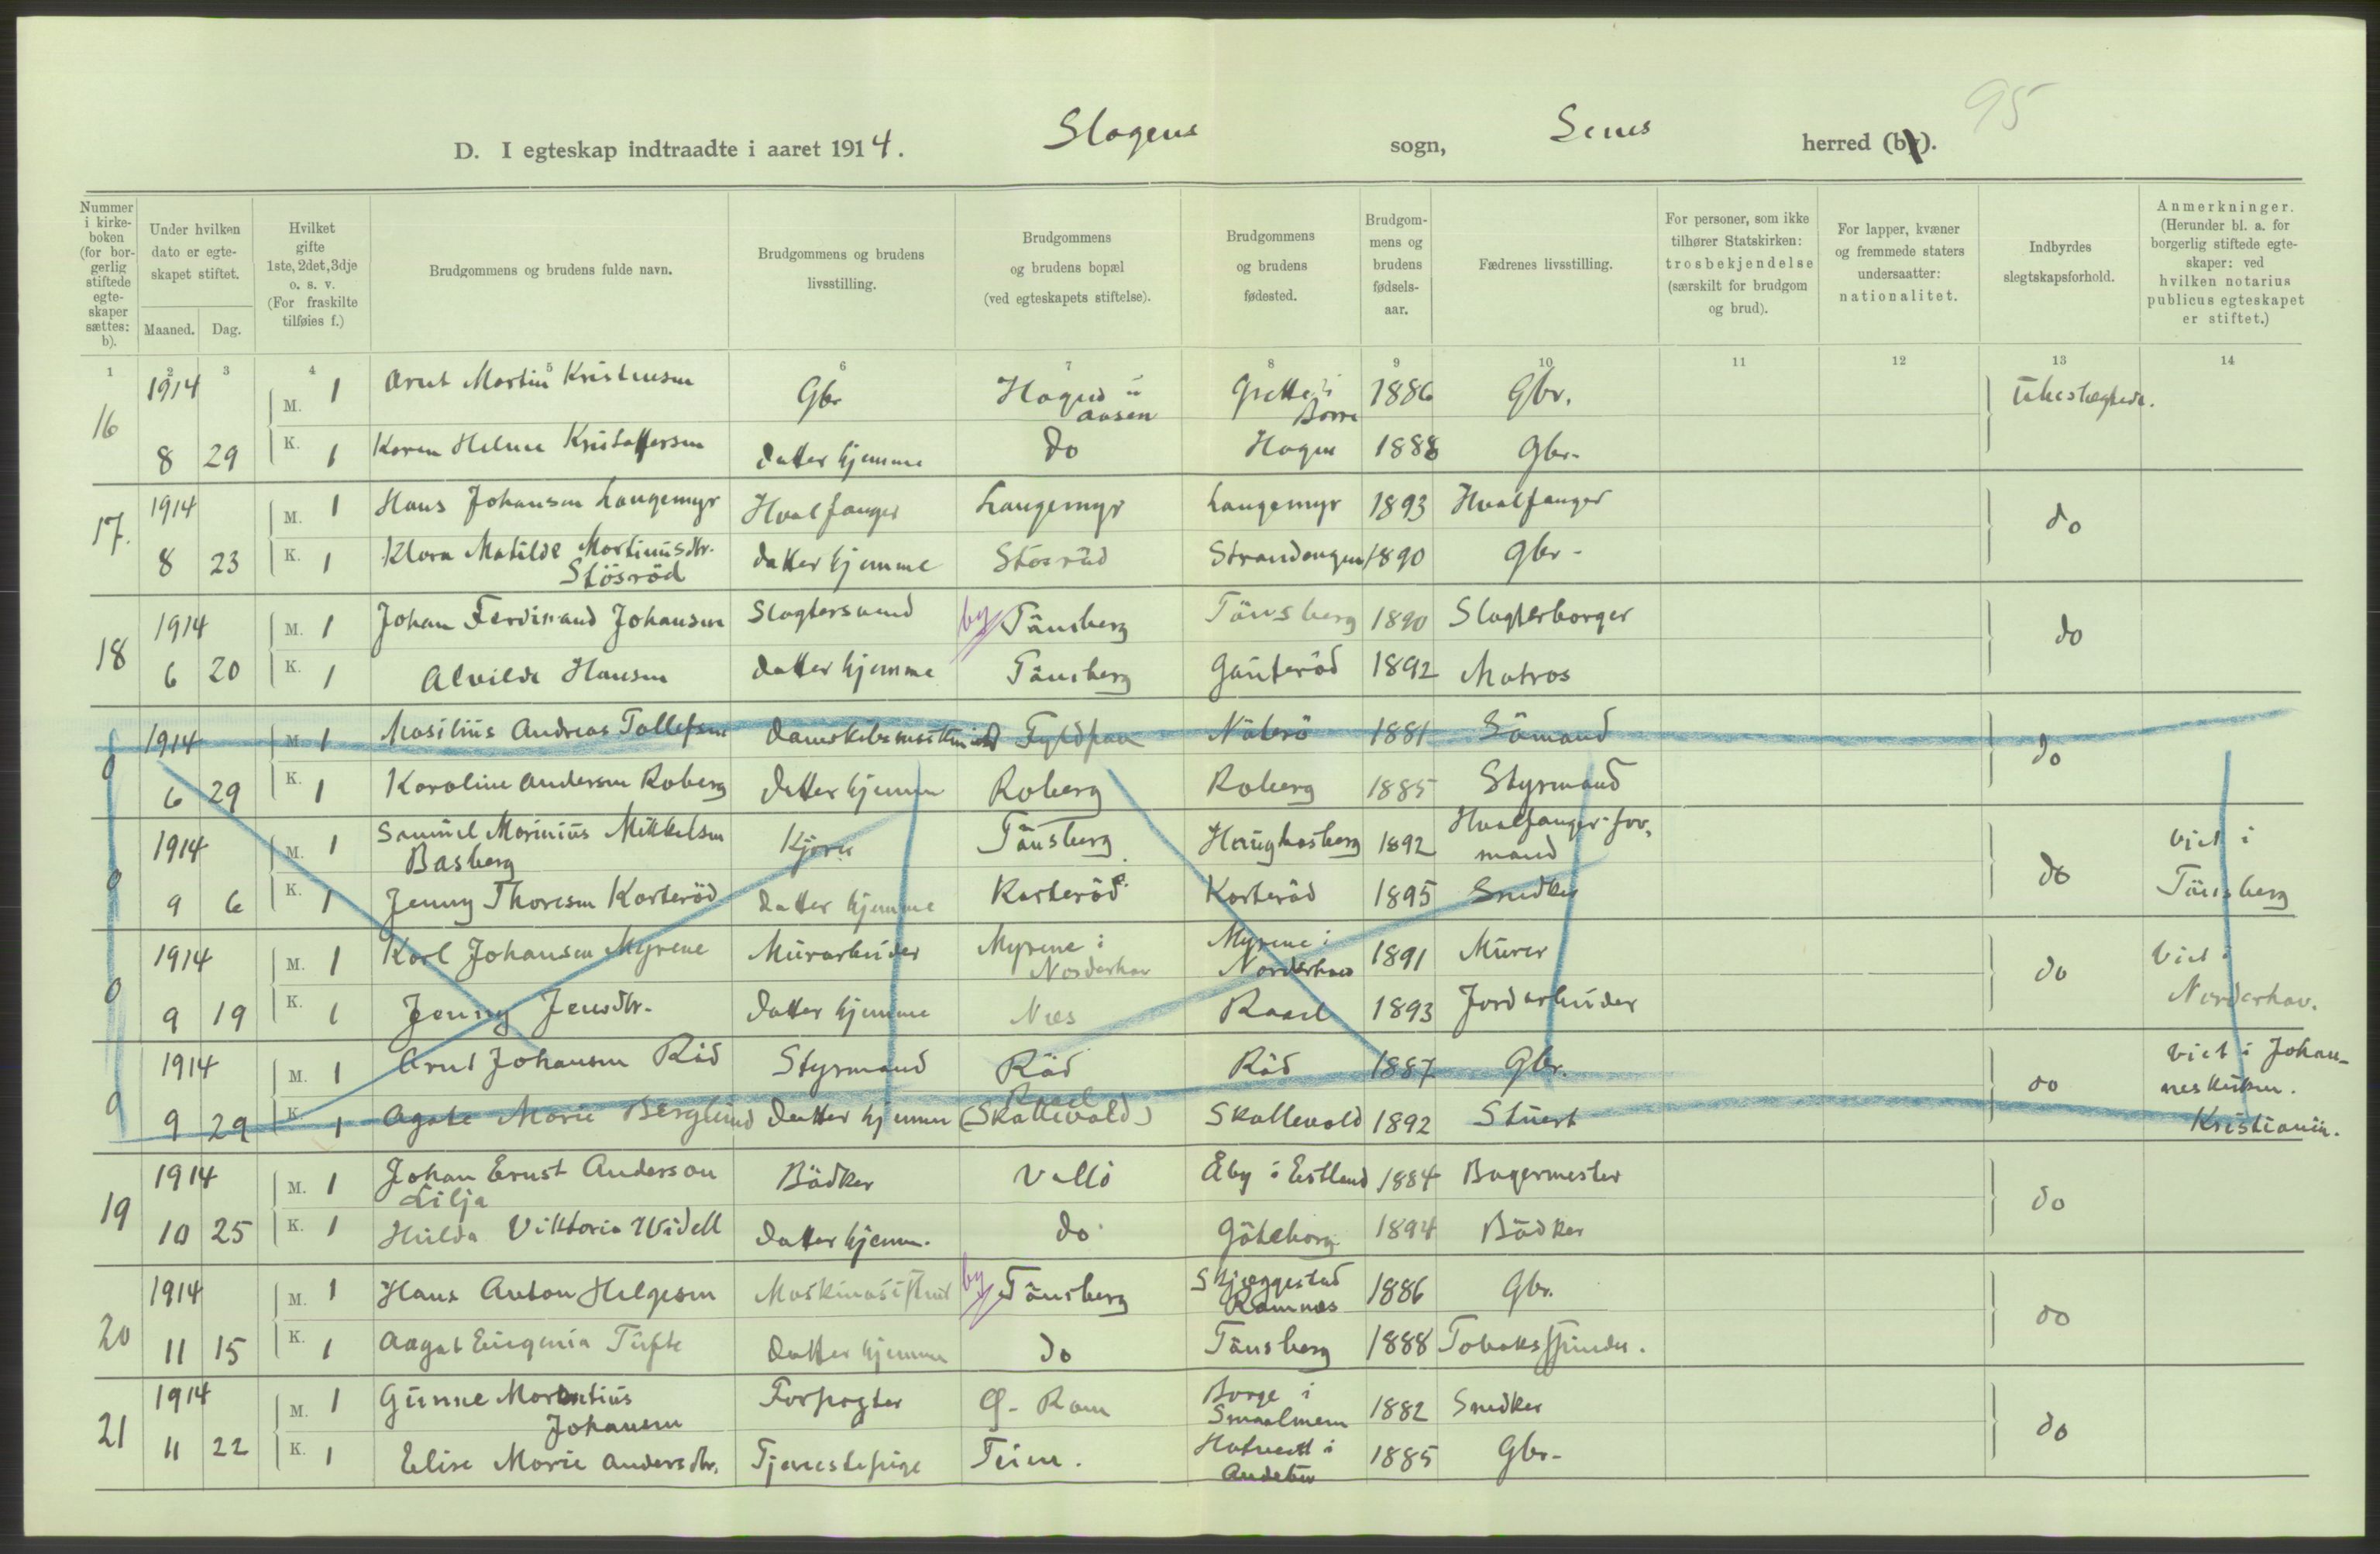 95
D. I egteskap indtraadte i aaret 1914. Slagens sogn, Sems herred (by).
Nummer i kirkeboken (for borgerlig stiftede egteskaper sættes: b).
Under hvilken dato er egteskapet stiftet.
Maaned. Dag.
Hvilket gifte 1ste, 2det, 3dje o. s. v. (For fraskilte tilføies f.)
Brudgommens og brudens fulde navn.
Brudgommens og brudens livsstilling.
Brudgommens og brudens bopæl (ved egteskapets stiftelse).
Brudgommens og brudens fødested.
Brudgommens og brudens fødselsaar.
Fædrenes livsstilling.
For personer, som ikke tilhører Statskirken: trosbekjendelse (særskilt for brudgom og brud).
For lapper, kvæner og fremmede staters undersaatter: nationalitet.
Indbyrdes slegtskapsforhold.
Anmerkninger. (Herunder bl. a. for borgerlig stiftede egteskaper: ved hvilken notarius publicus egteskapet er stiftet.)
1 2 3 4 5 6 7 8 9 10 11 12 13 14
16 1914 M. 1 Arnt Martin Kristensen Gbr Hagen i aasen Grette i Borre 1886 Gbr. Ubeslegtede.
8 29 K. 1 Karen Helene Kristoffersen datter hjemme do Hagen 1888 Gbr.
17. 1914 M. 1 Hans Johansen Langemyr Hvalfanger Langemyr Langemyr 1893 Hvalfanger do
8 23 K. 1 Klara Matilde Martinusdtr. Stösröd datter hjemme Stösröd Strandengen 1890 Gbr.
18 1914 M. 1 Johan Ferdinand Johansen Slagtersvend by Tönsberg Tönsberg 1890 Slagterborger do
6 20 K. 1 Alvilde Hansen datter hjemme Tönsberg Gauteröd 1892 Matros
0 1914 M. 1 Masilius Andreas Tollefsen Fyldpaa Nöterö 1881 Sömand do
6 29 K. 1 Karoline Andersen Roberg datter hjemme Roberg Roberg 1885 Styrmand
0 1914 M. 1 Samuel Marinius Mikkelsen Basberg Tönsberg Haughasberg 1892 Hvalfanger-formand do Viet i
9 6 K. 1 Jenny Thoresen Korteröd datter hjemme Korteröd Korteröd 1895 Snedker Tönsberg
0 1914 M. 1 Karl Johansen Myrene Murarbeider Myrene i Norderhov Myrene i Norderhov 1891 Murer do Viet i
9 19 K. 1 Jenny Jensdtr. datter hjemme Næs Raael 1893 Jordarbeider Norderhov.
0 1914 M. 1 Arnt Johansen Röd Styrmand Röd Röd 1887 Gbr. do Viet i Johanneskirken.
9 29 K. 1 Agate Marie Berglund datter hjemme Raael (Skallevold) Skallevold 1892 Stuert Kristiania.
19 1914 M. 1 Johan Ernst Anderson Lilja Bödker Vallö Åby i Estland 1884 Bagermester do
10 25 K. 1 Hilda Viktoria Widell datter hjemm. do Göteborg 1894 Bödker
20 1914 M. 1 Hans Anton Helgesen Maskinasistent by Tönsberg Skjeggestad Ramnes 1886 Gbr. do
11 15 K. 1 Aagot Eugenia Tufte datter hjemme do Tönsberg 1888 Tobakspinder.
21 1914 M. 1 Gunne Morentius Johansen Forpagter Ø. Rom Borge i Smaalenene 1882 Snedker do
11 22 K. 1 Elise Marie Andersdtr. Tjenestepige Teien. Hotvedt i Andebu 1885 Gbr.